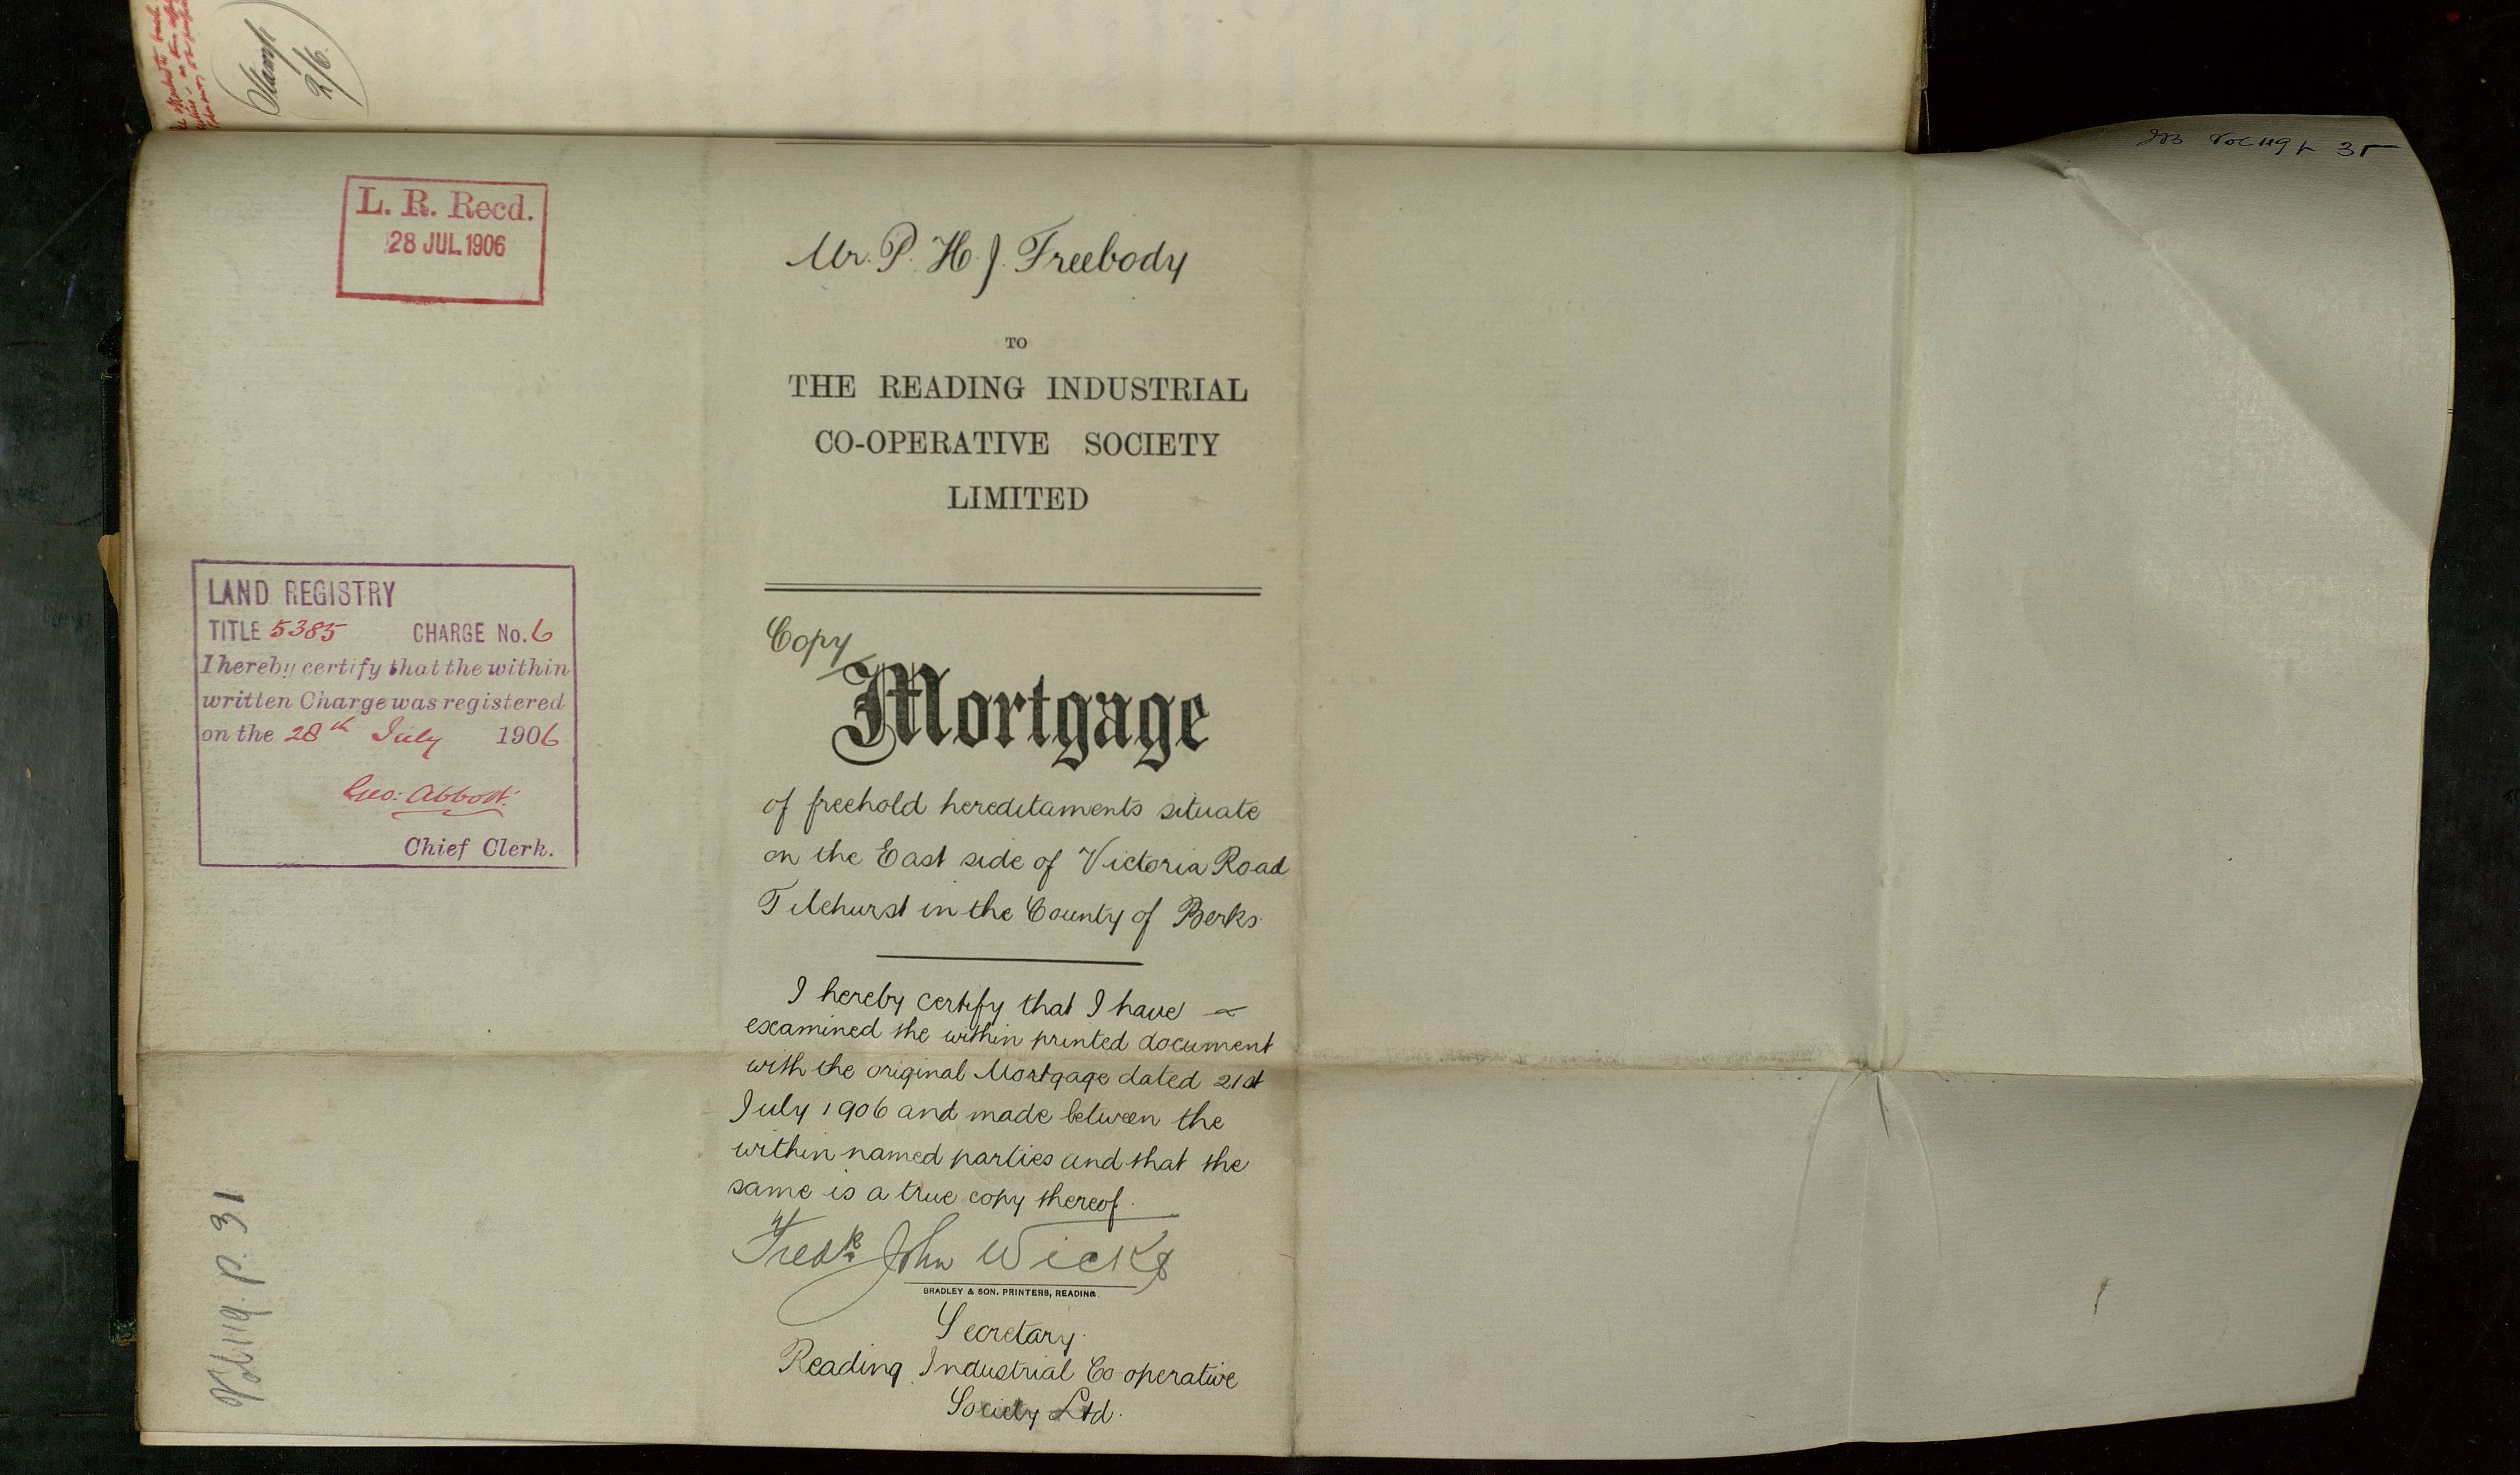 Stamp
2/6.
L. R. Recd.
28 JUL 1906
Mr. P. H. J. Freebody
TO
THE READING INDUSTRIAL
CO-OPERATIVE SOCIETY
LIMITED
LAND REGISTRY
TITLE 5385 CHARGE No. 6
I hereby certify that the within
written Charge was registered
on the 28th July 1906
Geo: Abbott.
Chief Clerk.
Copy
Mortgage
of freehold hereditaments situate
on the East side of Victoria Road
Tilehurst in the County of Berks.
I hereby certify that I have
examined the within printed document
with the original Mortgage dated 21st
July 1906 and made between the
within named parties and that the
same is a true copy thereof.
Fredk John Wicks
BRADLEY & SON. PRINTERS, READING.
Secretary.
Reading Industrial Co operative
Society Ltd.
Vol 119. p. 31